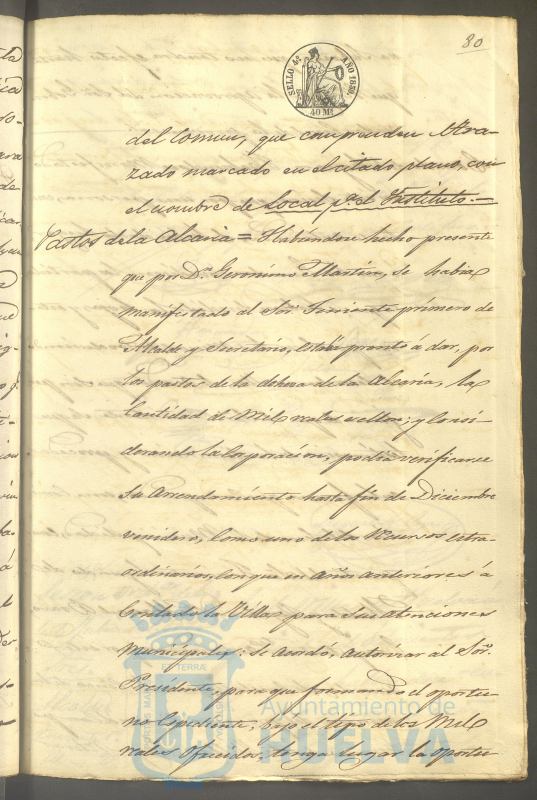 80
SELLO 4º AÑO 1856
40 Ms
del Comun, que comprenden el tra-
zado marcado en el citado plano, con
el nombre de Local pª el Instituto.=
Pastos de la Alcaria = Habiendose hecho presente
que por Dn. Geronimo Martin, se habia
manifestado al Sor. Teniente primero de
Alcalde y Secretario, estar pronto á dar, por
los pastos de la dehesa de la Alcaria, la
Cantidad de Mil reales vellon; y Consi-
derando la Corporacion, podia verificarse
su Arrendamiento hasta fin de Diciembre
venidero, Como uno de los Recursos estra-
ordinarios, con que en años anteriores á
Contado la Villa para sus atenciones
Municipales: se Acordó, autorizar al Sor.
Presidente, para que formando el oportu-
no Espediente, bajo el tipo de los Mil
reales ofrecidos, tenga lugar la oportu-
Ayuntamiento de
HUELVA